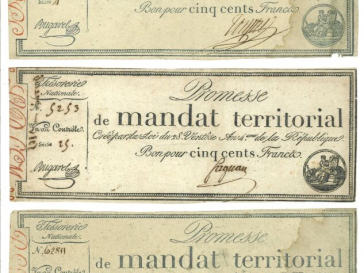 Bon pour cinq cents Francs
Bugarel
Promesse
Trésorerie
Nationale.
5253
de mandat territorial
Vu au Contrôle
Créé par la Loi du 28. Ventôse An 4.me de la République
Série
25.
Bon pour cinq cents Francs
Bugarel
Promesse
Trésorerie
Nationale.
de mandat territorial
Vu au Contrôle